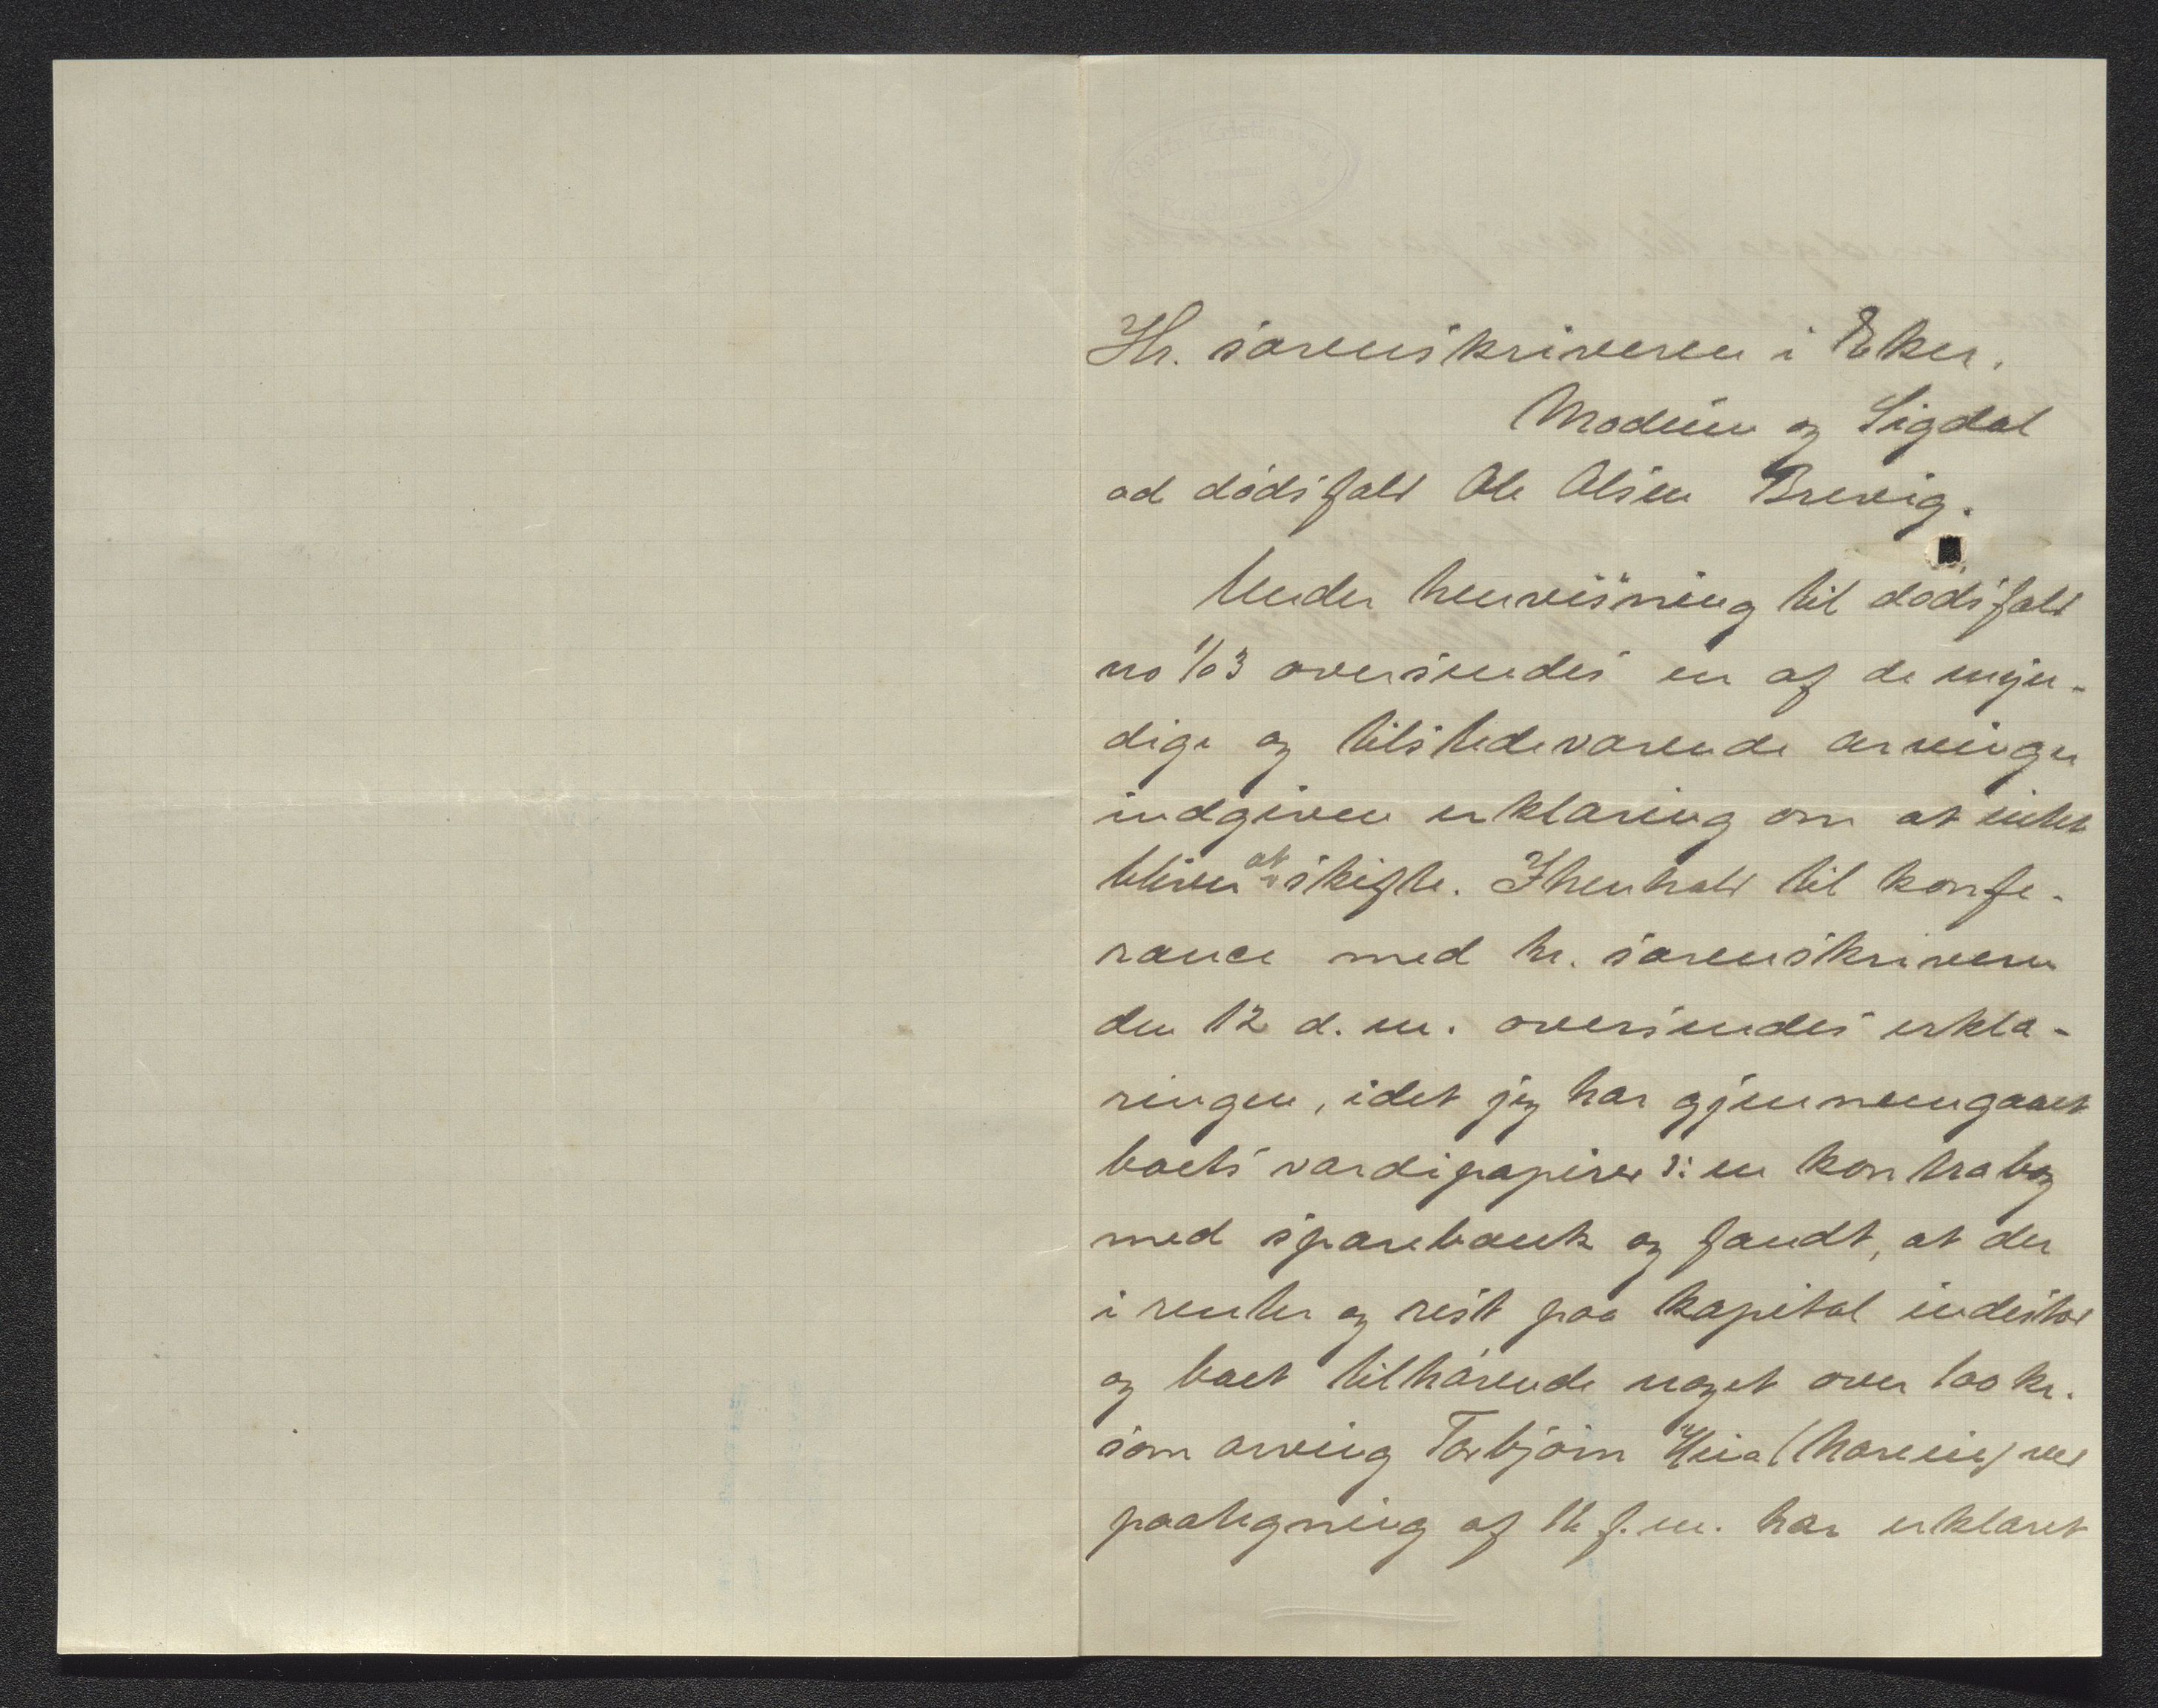 Hr. sorenskriveren i Eker,
Modum og Sigdal
ad dødsfald Ole Olsen Brevig.
Under henvisning til dødsfald
no 103 oversendes en af de myn-
dige og tilstedeværende arvinger
indgiven erklæring om at intet
bliver at skifte. I henhold til konfe-
rance med hr. sorenskriveren
den 12 d.m. oversendes erklæ-
ringen, idet jeg har gjennemgaaet
boets værdipapirer ɔ: en kontrabog
med sparebank og fandt, at der
i renter og rest paa kapital indestod
og boet tilhørende noget over 100 kr.
som arving Torbjørn ved
paategning af f.m. har erklæret